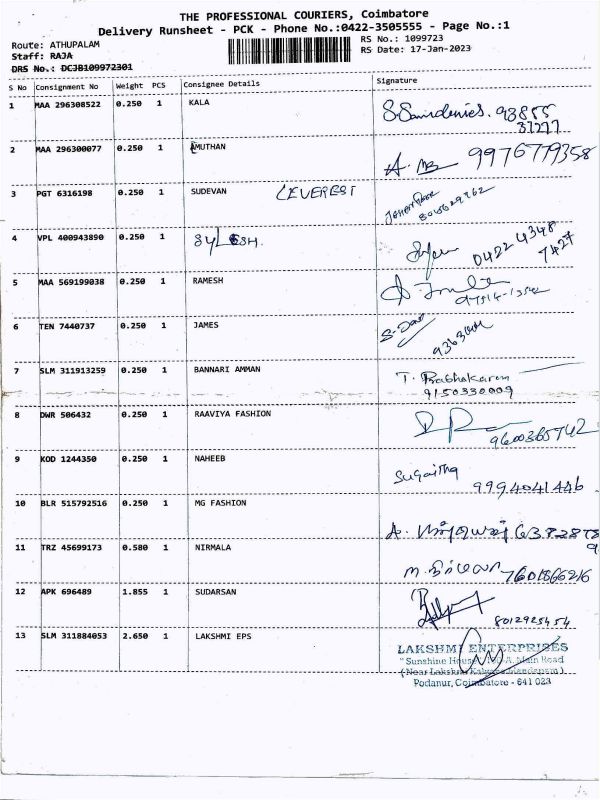 THE PROFESSIONAL COURIERS, Coimbatore
Delivery Runsheet - PCK - Phone No.:0422-3505555 - Page No.:1
Route: ATHUPALAM
RS No.: 1099723
Staff: RAJA
RS Date: 17-Jan-2023
DRS No.: DCJB109972301
S No Consignment No Weight PCS Consignee Details Signature
1 MAA 296308522 0.250 1 KALA
93855
37277
2 MAA 296300077 0.250 1 AMUTHAN
9976779358
3 PGT 6316198 0.250 1 SUDEVAN (EVEREST
4 VPL 400943890 0.250 1
0422 4348
7427
5 MAA 569199038 0.250 1 RAMESH
97514-13542
6 TEN 7440737 0.250 1 JAMES
7 SLM 311913259 0.250 1 BANNARI AMMAN
T. Prabhakaran
9150330009
8 DWR 506432 0.250 1 RAAVIYA FASHION
9600365742
9 KOD 1244350 0.250 1 NAHEEB
9994041446
10 BLR 515792516 0.250 1 MG FASHION
11 TRZ 45699173 0.580 1 NIRMALA
ന 7601866216
12 APK 696489 1.855 1 SUDARSAN
8012925454
13 SLM 311884053 2.650 1 LAKSHMI EPS
LAKSHMI ENTERPRISES
"Sunshine House" Main Road
(Near Lakshmi Kalyana Mandapam)
Podanur, Coimbatore - 641 023